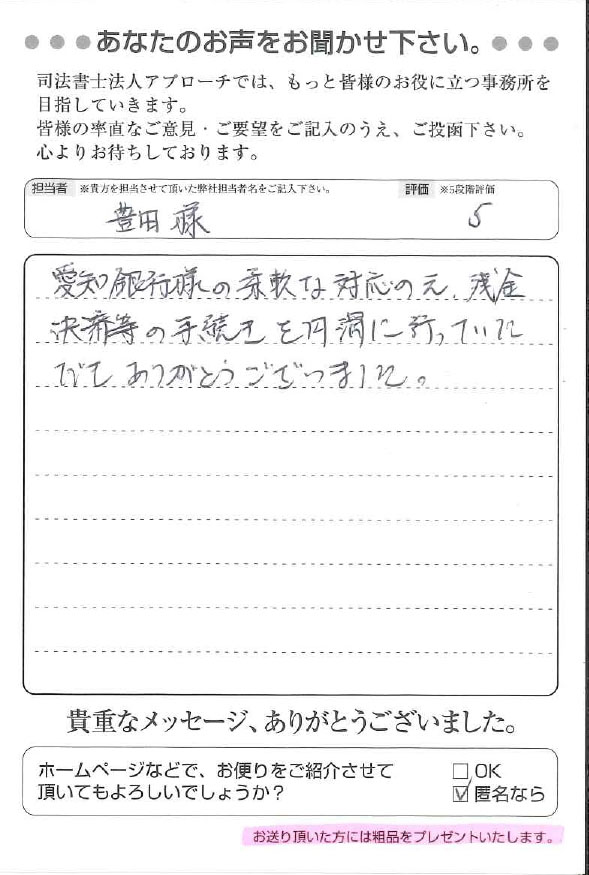 ●●●あなたのお声をお聞かせ下さい。●●●
司法書士法人アプローチでは、もっと皆様のお役に立つ事務所を
目指していきます。
皆様の率直なご意見・ご要望をご記入のうえ、ご投函下さい。
心よりお待ちしております。
担当者 ※貴方を担当させて頂いた弊社担当者名をご記入下さい。 評価 ※5段階評価
豊田 様 5
愛知銀行様の柔軟な対応の元、残金
決済等の手続きを円滑に行っていた
だき ありがとうございました。
貴重なメッセージ、ありがとうございました。
ホームページなどで、お便りをご紹介させて
頂いてもよろしいでしょうか?
□ OK
☑ 匿名なら
お送り頂いた方には粗品をプレゼントいたします。